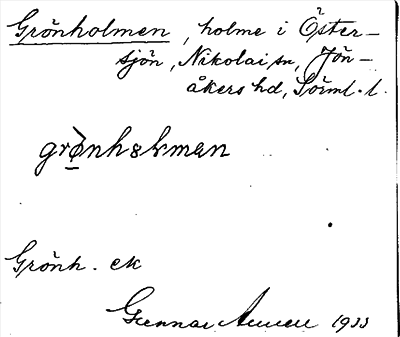 Grönholmen, holme i Öster-
sjön, Nikolai sn, Jön-
åkers hd, Söml. l.
Grönh. ek
Gunnar 1933